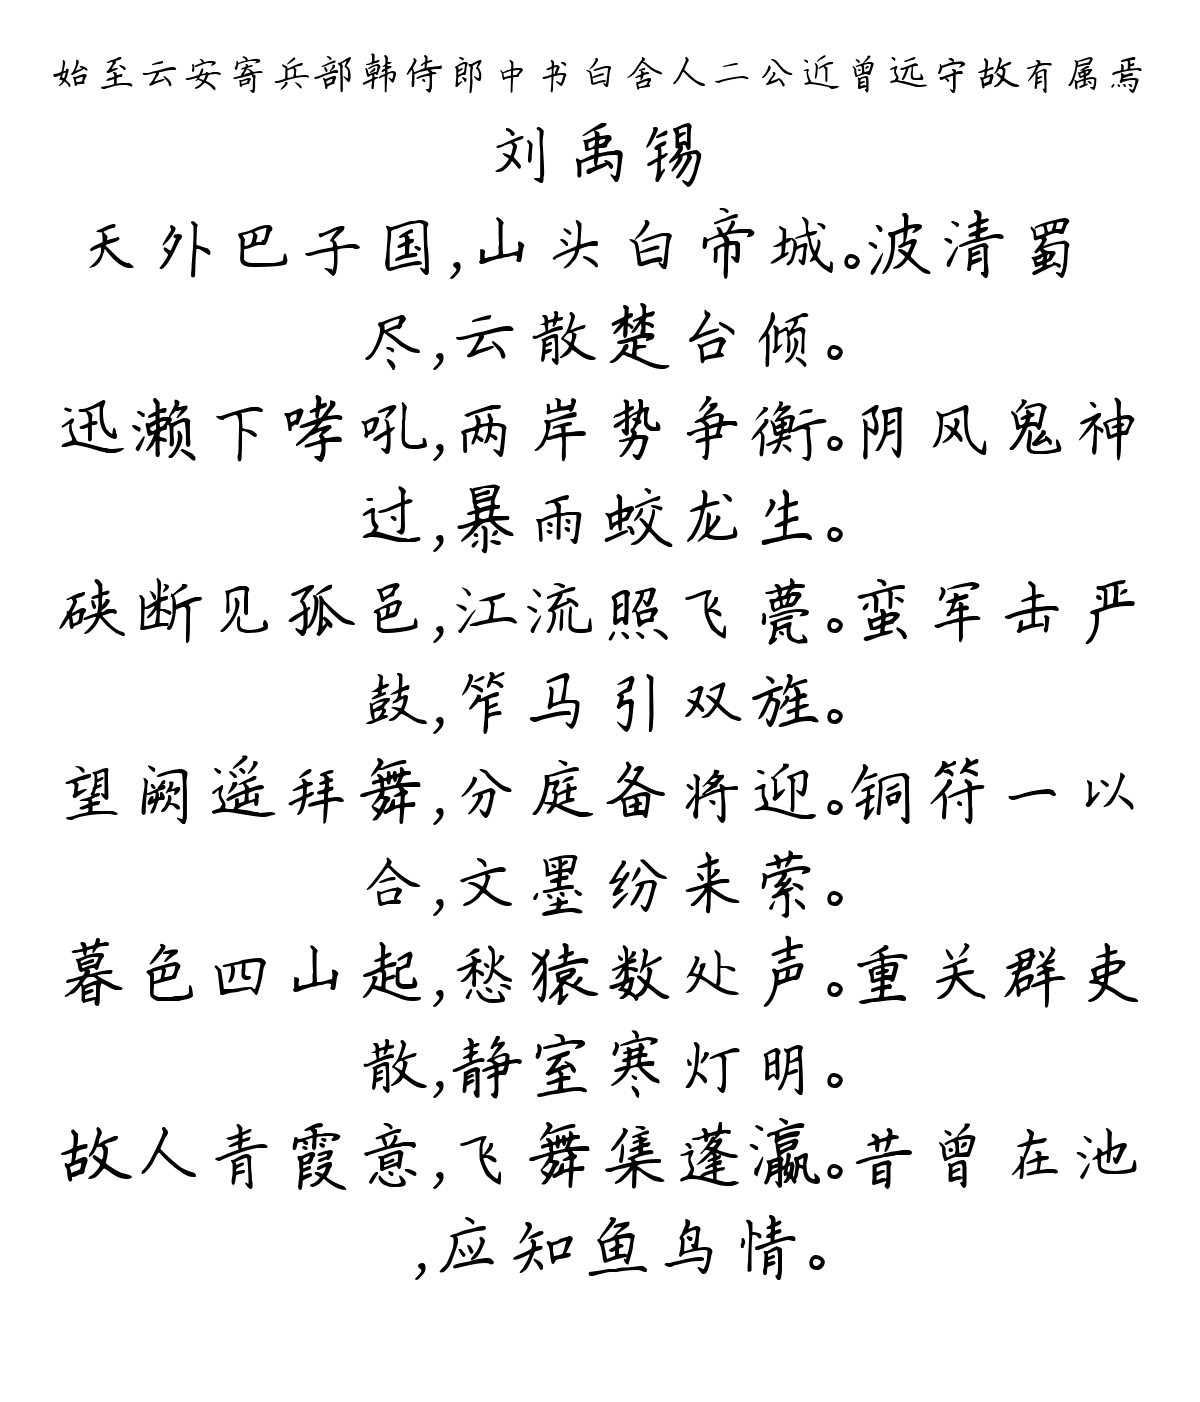 始至云安寄兵部韩侍郎中书白舍人二公近曾远守故有属焉
刘禹锡
天外巴子国,山头白帝城。波清蜀
尽,云散楚台倾。
迅濑下哮吼,两岸势争衡。阴风鬼神
过,暴雨蛟龙生。
硖断见孤邑,江流照飞甍。蛮军击严
鼓,笮马引双旌。
望阙遥拜舞,分庭备将迎。铜符一以
合,文墨纷来萦。
暮色四山起,愁猿数处声。重关群吏
散,静室寒灯明。
故人青霞意,飞舞集蓬瀛。昔曾在池
,应知鱼鸟情。